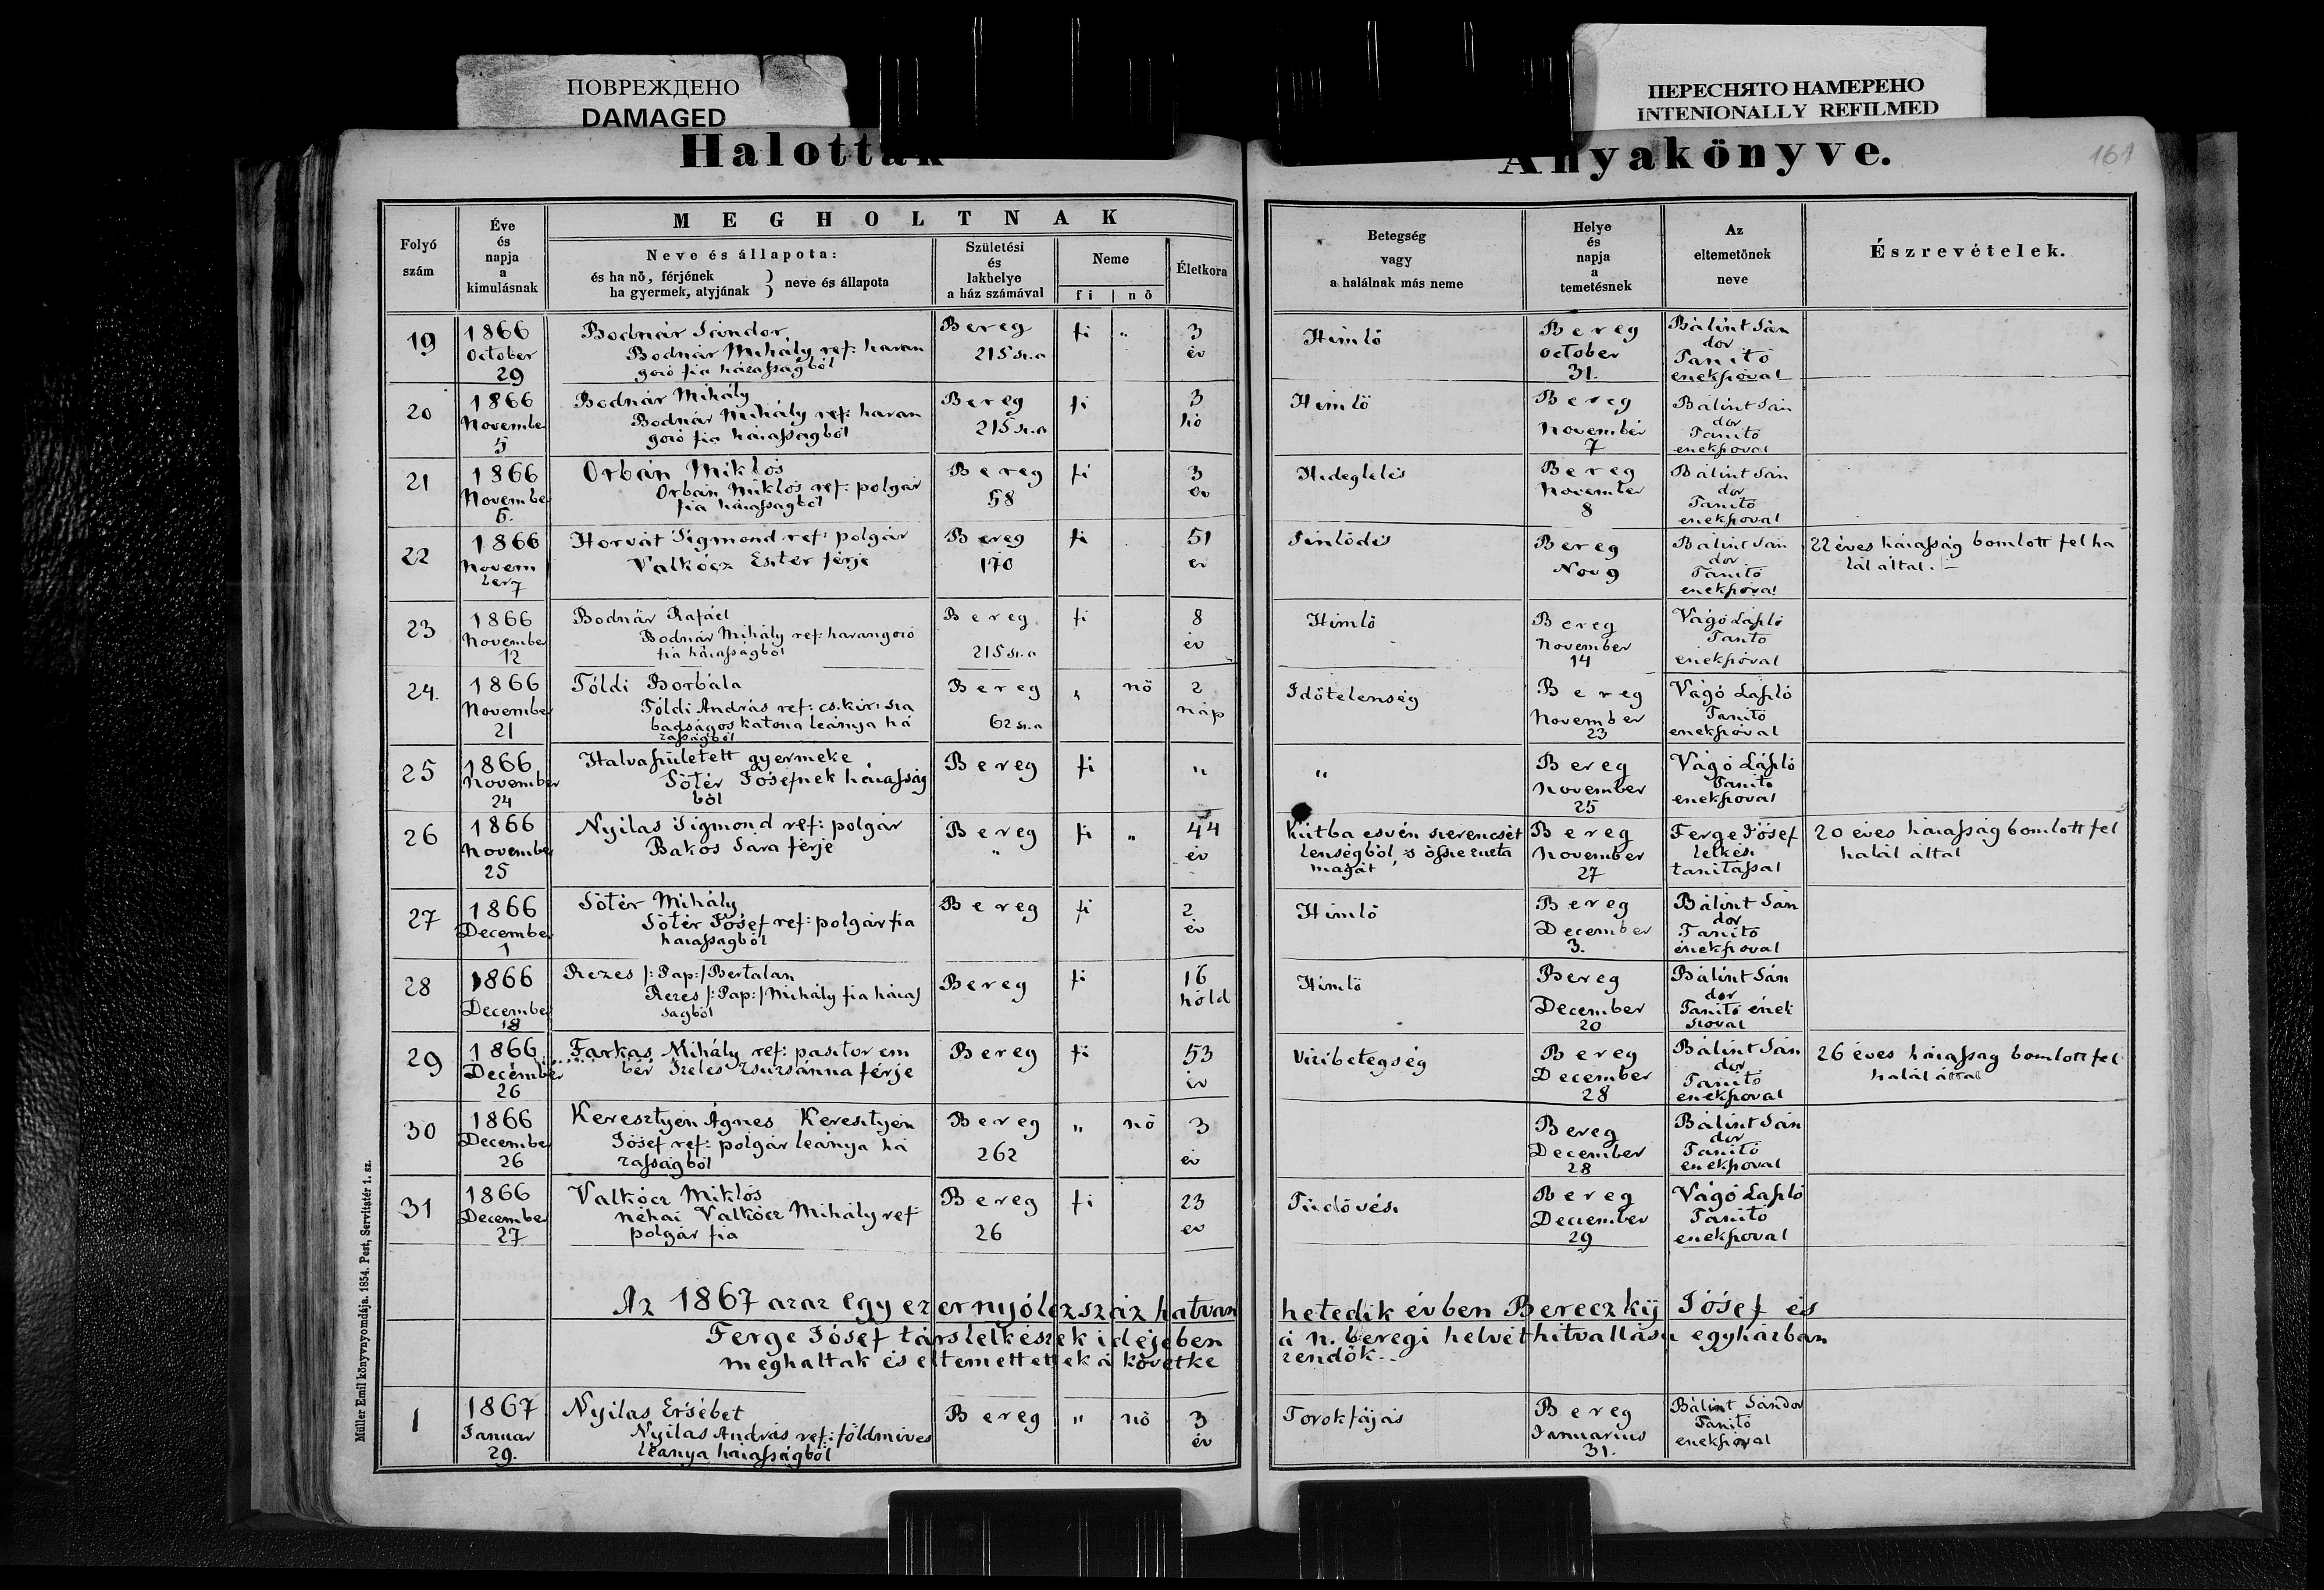 ПОВРЕЖДЕНО
DAMAGED
ПЕРЕСНЯТО НАМЕРЕНО
INTENIONALLY REFILMED
Halottak Anyakönyve.
161
Folyó szám
Éve és napja a kimulásnak
MEGHOLTNAK
Neve és állapota:
és ha nö, férjének
ha gyermek, atyjának } neve és állapota
Születési és lakhelye a ház számával
Neme
fi | nö
Életkora
Betegség vagy a halálnak más neme
Helye és napja a temetésnek
Az eltemetönek neve
Észrevételek.
19
1866
October
29
Bodnár Sándor
Bodnár Mihály ref: haran
gozó fia házasságból
Bereg
215 sz.a
fi
„
3
év
Himlő
Bereg
October
31.
Bálint Sán
dor
Tanító
énekszóval
20
1866
Novembe
5
Bodnár Mihály
Bodnár Mihály ref: haran
gozó fia házasságból
Bereg
215 sz.a
fi
3
hó
Himlő
Bereg
November
7
Bálint Sán
dor
Tanító
énekszoval
21
1866
Novembe
6.
Orbán Miklós
Orbán Miklós ref: polgár
fia házasságból
Bereg
58
fi
3
év
Hideglelés
Bereg
November
8
Bálint Sán
dor
Tanító
énekszoval
22
1866
Novem
ber 7
Horvát Sigmond ref: polgár
Valkócz Eszter férje
Bereg
170
fi
51
év
Sinlődés
Bereg
Nov 9
Bálint Sán
dor
Tanító
énekszóval
22 éves házasság bomlott fel ha
lál által.
23
1866
Novembe
12
Bodnár Rafáel
Bodnár Mihály ref: harangozó
fia házasságból
Bereg
215 sz.a
fi
8
év
Himlő
Bereg
November
14
Vágó László
Tanító
énekszóval
24.
1866
Novembe
21
Földi Borbála
Földi András ref: cs. kir: sza
badságos katona leánya há
zasságból
Bereg
62 sz.a
„
nő
2
nap
Időtelenség
Bereg
November
23
Vágó László
Tanító
énekszóval
25
1866
November
24
Halvaszületett gyermeke
Sőtér Jósefnek házasság
ból
Bereg
fi
„
„
Bereg
November
25
Vágó László
Tanító
énekszoval
26
1866
Novembe
25
Nyilas Sigmond ref: polgár
Bakos Sára férje
Bereg
„
fi
„
44
év
Kútba esvén szerencsét
lenségből, 's össze zúzta
magát
Bereg
November
27
Ferge Jósef
lelkész
tanitással
20 éves házasság bomlott fel
halál által
27
1866
December
1
Sőtér Mihály
Sőtér Jósef ref: polgár fia
házasságból
Bereg
fi
2
év
Himlő
Bereg
December
3.
Bálint Sán
dor
Tanító
énekszoval
28
1866
December
18
Rezes /: Pap:/ Bertalan
Rezes /: Pap:/ Mihály fia házas
ságból
Bereg
fi
16
hold
Himlő
Bereg
December
20
Bálint Sán
dor
Tanító ének
szoval
29
1866
December
26
Farkas Mihály ref: pasztor em
ber Szeles Zsuzsánna férje
Bereg
fi
53
év
Vizibetegség
Bereg
December
28
Bálint Sán
dor
Tanító
énekszoval
26 éves házasság bomlott fel
halál által
30
1866
Decembe
26
Keresztyén Ágnes Keresztyén
Jósef ref: polgár leánya há
zasságból
Bereg
262
„
nő
3
év
Bereg
December
28
Bálint Sán
dor
Tanító
énekszoval
31
1866
December
27
Valkócz Miklós
néhai Valkócz Mihály ref
polgár fia
Bereg
26
fi
23
év
Tüdővész
Bereg
December
29
Vágó László
Tanító
énekszoval
Az 1867 azaz egy ezernyólczszáz hatvan hetedik évben Bereczkÿ Jósef és
Ferge Jósef társlelkészek idejében a n. beregi helvét hitvallású egyházban
meghaltak és eltemettettek a követke zendők.
1
1867
Januar
29.
Nyilas Ersébet
Nyilas András ref: földmives
leánya házasságból
Bereg
„
nő
3
év
Torokfájás
Bereg
Januarius
31.
Bálint Sándor
Tanító
énekszóval
Müller Emil könyvnyomdája. 1854. Pest, Servitatér 1. sz.